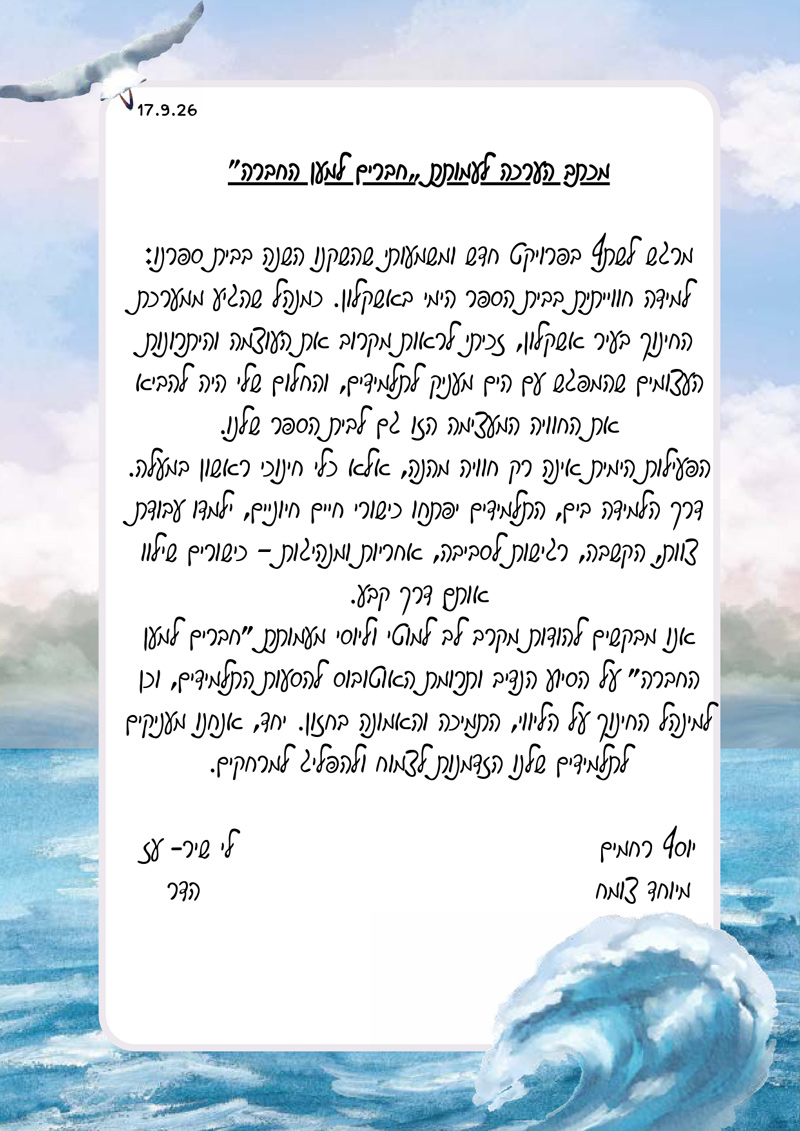 17.9.26
מכתב הערכה לעמותת "חברים למען החברה"
מרגש לשתף בפרויקט חדש ומשמעותי שהשקנו השנה בבית ספרנו:
למידה חווייתית בבית הספר הימי באשקלון. כמנהל שהגיע ממערכת
החינוך בעיר אשקלון, זכיתי לראות מקרוב את העוצמה והיתרונות
העצומים שהמפגש עם הים מעניק לתלמידים, והחלום שלי היה להביא
את החוויה המעצימה הזו גם לבית הספר שלנו.
הפעילות הימית אינה רק חוויה מהנה, אלא כלי חינוכי ראשון במעלה.
דרך הלמידה בים, התלמידים יפתחו כישורי חיים חיוניים, ילמדו עבודת
צוות, הקשבה, רגישות לסביבה, אחריות ומנהיגות – כישורים שילוו
אותם דרך קבע.
אנו מבקשים להודות מקרב לב למוטי וליוסי מעמותת "חברים למען
החברה" על הסיוע הנדיב ותרומת האוטובוס להסעות התלמידים, וכן
למינהל החינוך על הליווי, התמיכה והאמונה בחזון. יחד, אנחנו מעניקים
לתלמידים שלנו הזדמנות לצמוח ולהפליג למרחקים.
יוסף רחמים
לי שיר- עז
מיוחד צומח
הדר